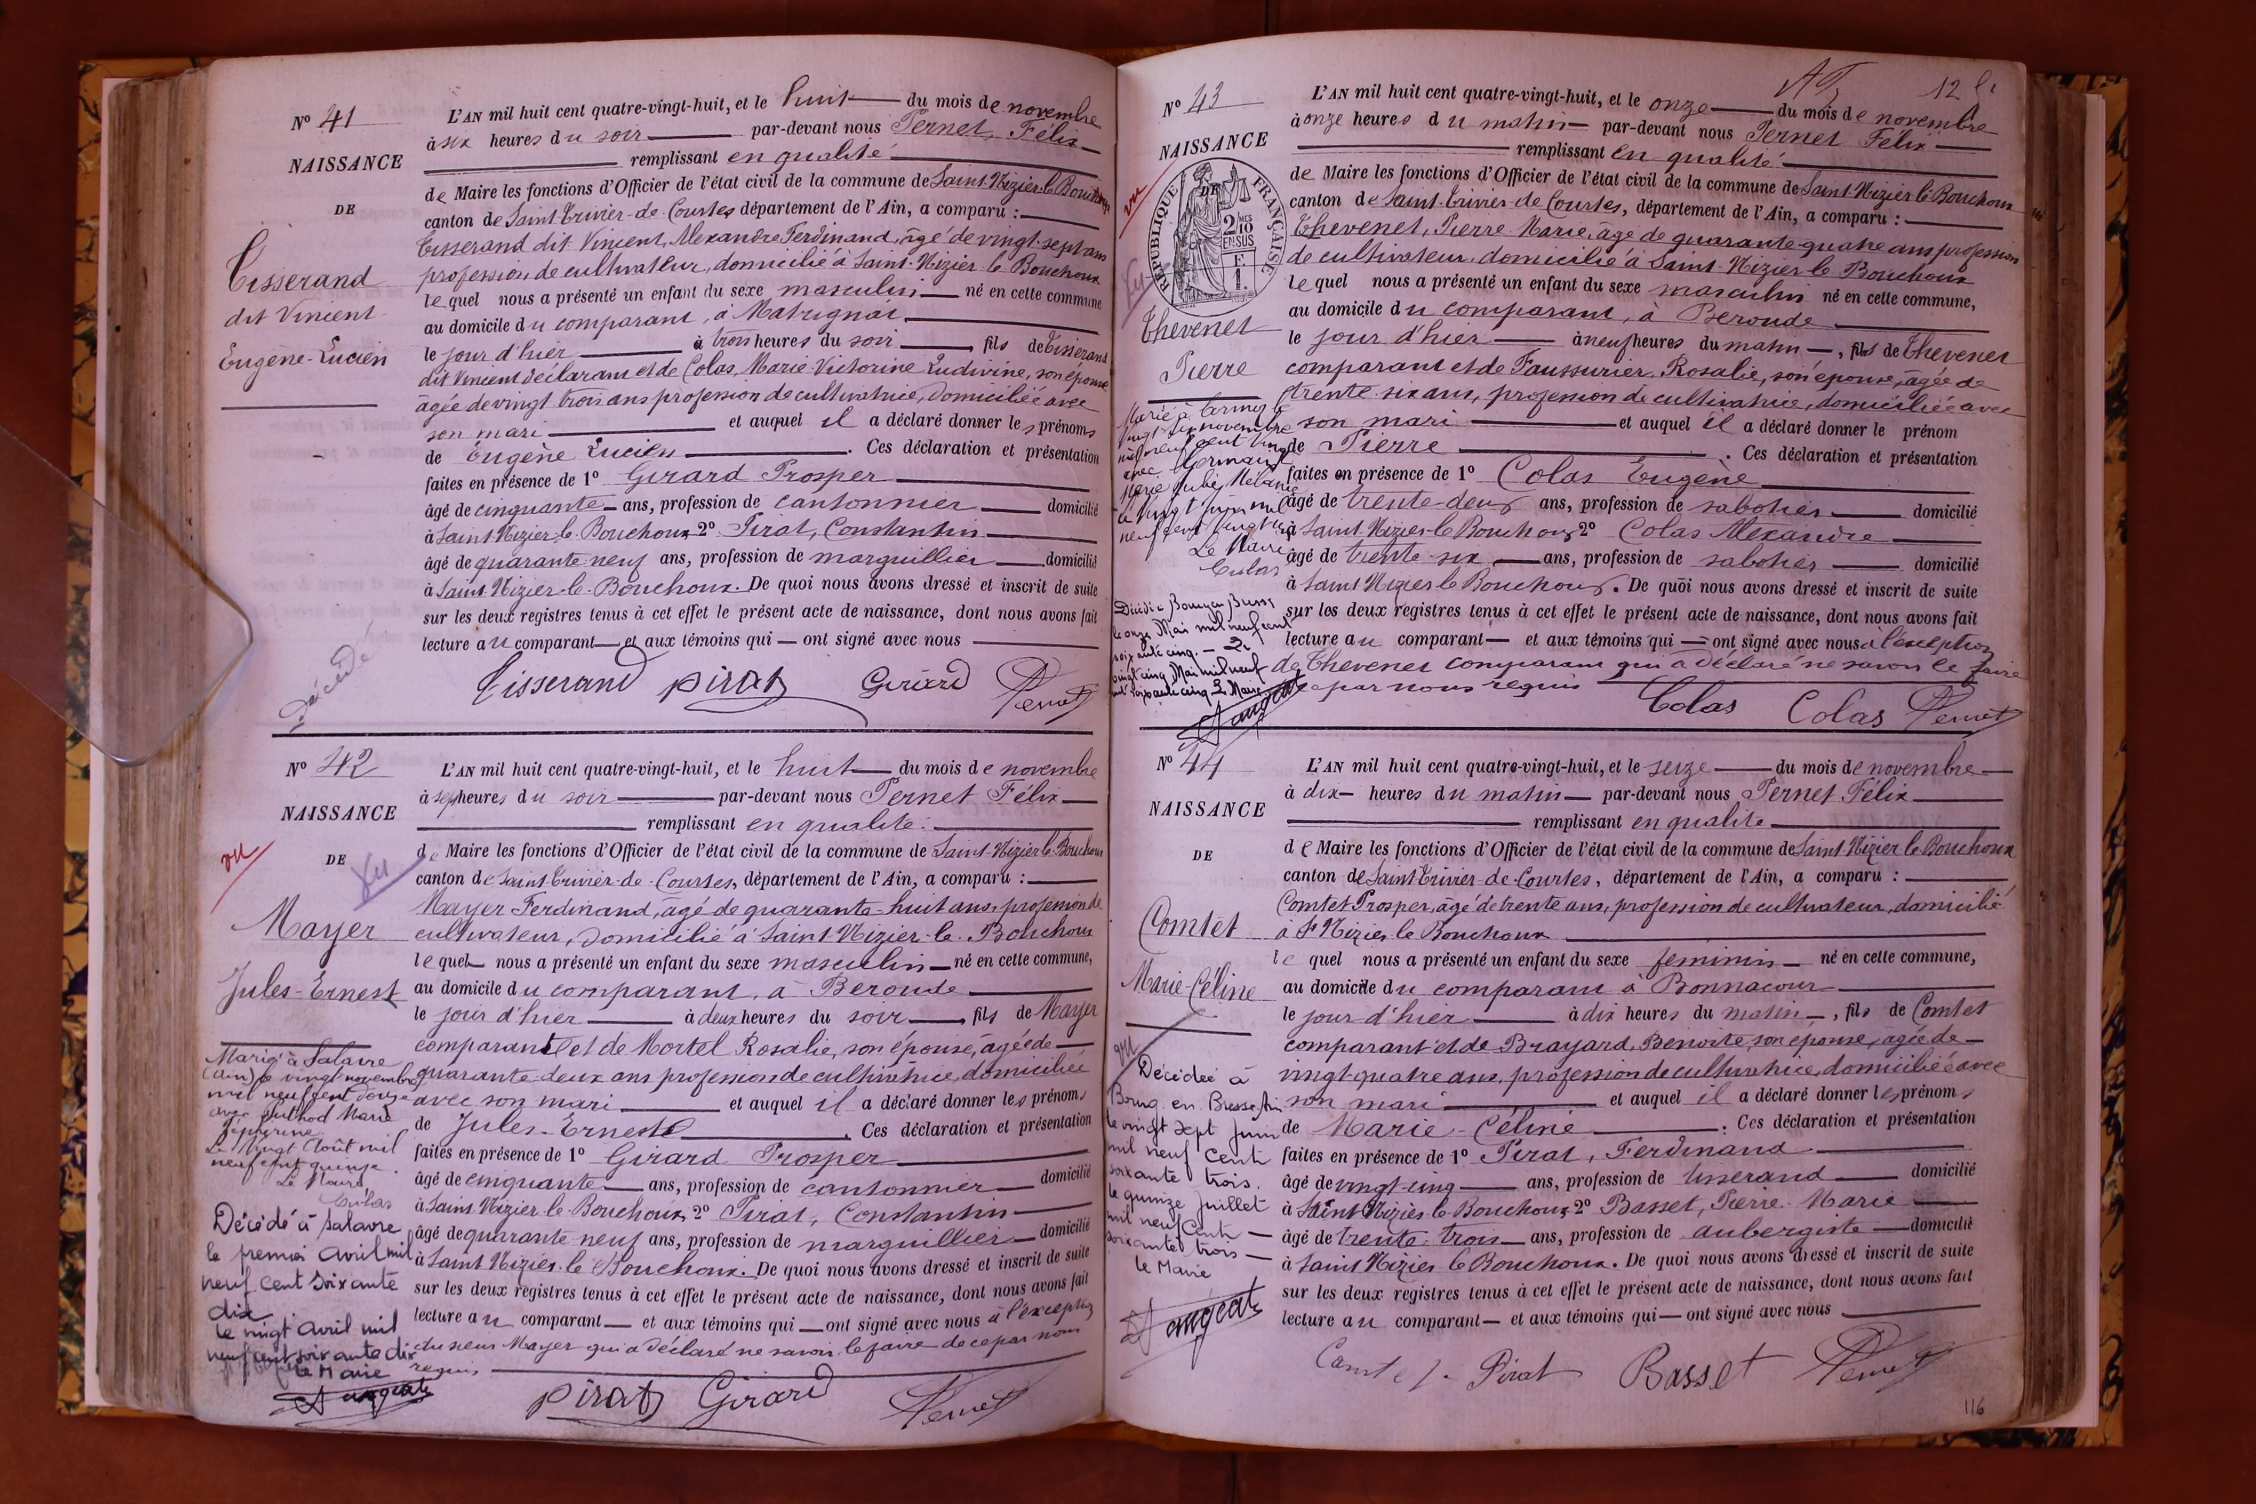 N° 41
NAISSANCE
DE
Tisserand
dit Vincent
Eugène-Lucien
Décédé
L'AN mil huit cent quatre-vingt-huit, et le huit du mois de novembre
à six heures du soir par-devant nous Pernet, Félix
remplissant en qualité
de Maire les fonctions d'Officier de l'état civil de la commune de Saint-Nizier-le-Bouchoux
canton de Saint-Trivier-de-Courtes département de l'Ain, a comparu :
Tisserand dit Vincent, Alexandre Ferdinand, âgé de vingt-sept ans
profession de cultivateur, domicilié à Saint-Nizier-le-Bouchoux
lequel nous a présenté un enfant du sexe masculin né en cette commune
au domicile du comparant, à
le jour d'hier à trois heures du soir, fils de Tisserand
dit Vincent déclarant et de Colas, Marie Victorine Ludivine, son épouse
âgée de vingt trois ans profession de cultivatrice, domiciliée avec
son mari et auquel il a déclaré donner les prénoms
de Eugène Lucien. Ces déclaration et présentation
faites en présence de 1° Girard Prosper
âgé de cinquante ans, profession de cantonnier domicilié
à Saint-Nizier-le-Bouchoux 2° Pirat, Constantin
âgé de quarante neuf ans, profession de marguillier domicilié
à Saint-Nizier-le-Bouchoux. De quoi nous avons dressé et inscrit de suite
sur les deux registres tenus à cet effet le présent acte de naissance, dont nous avons fait
lecture au comparant et aux témoins qui ont signé avec nous
Tisserand Pirat Girard Pernet
N° 42
NAISSANCE
vu
DE
Mayer
Jules-Ernest
Marié à Salavre
(Ain) le vingt novembre
mil neuf cent douze
avec Marie
Le vingt Août mil
neuf cent quinze
Le Maire,
Colas
Décédé à Salavre
le premier avril mil
neuf cent soixante
dix
le vingt avril mil
neuf cent soixante dix
le Maire
L'AN mil huit cent quatre-vingt-huit, et le huit du mois de novembre
à sept heures du soir par-devant nous Pernet Félix
remplissant en qualité
de Maire les fonctions d'Officier de l'état civil de la commune de Saint-Nizier-le-Bouchoux
canton de Saint-Trivier-de-Courtes, département de l'Ain, a comparu :
Mayer Ferdinand, âgé de quarante-huit ans profession de
cultivateur, domicilié à Saint-Nizier-le-Bouchoux
lequel nous a présenté un enfant du sexe masculin né en cette commune,
au domicile du comparant, à Béroude
le jour d'hier à deux heures du soir, fils de Mayer
comparant et de Mortel Rosalie, son épouse, âgée de
quarante deux ans profession de cultivatrice, domiciliée
avec son mari et auquel il a déclaré donner les prénoms
de Jules-Ernest. Ces déclaration et présentation
faites en présence de 1° Girard Prosper
âgé de cinquante ans, profession de cantonnier domicilié
à Saint-Nizier-le-Bouchoux 2° Pirat, Constantin
âgé de quarante neuf ans, profession de marguillier domicilié
à Saint-Nizier-le-Bouchoux. De quoi nous avons dressé et inscrit de suite
sur les deux registres tenus à cet effet le présent acte de naissance, dont nous avons fait
lecture au comparant et aux témoins qui ont signé avec nous à l'exception
du sieur Mayer qui a déclaré ne savoir le faire de ce par nous
requis
Pirat Girard Pernet
12
N° 43
NAISSANCE
DE
vu
RÉPUBLIQUE FRANÇAISE
2 MES
10
EN SUS
F.
1.
Thevenet
Pierre
Marié à
vingt novembre
mil neuf cent vingt
avec
Marie Julie Mélanie
le vingt juin mil
neuf cent vingt
Le Maire
Colas
Décédé à Bourg en Bresse
le onze Mai mil neuf cent
soixante cinq. - Le
vingt cinq Mai mil neuf
cent soixante cinq Le Maire
L'AN mil huit cent quatre-vingt-huit, et le onze du mois de novembre
à onze heures du matin par-devant nous Pernet Félix
remplissant en qualité
de Maire les fonctions d'Officier de l'état civil de la commune de Saint-Nizier-le-Bouchoux
canton de Saint-Trivier-de-Courtes, département de l'Ain, a comparu :
Thevenet, Pierre Marie, âgé de quarante-quatre ans profession
de cultivateur, domicilié à Saint-Nizier-le-Bouchoux
lequel nous a présenté un enfant du sexe masculin né en cette commune,
au domicile du comparant, à Béroude
le jour d'hier à neuf heures du matin, fils de Thevenet
comparant et de Faussurier Rosalie, son épouse, âgée de
trente six ans, profession de cultivatrice, domiciliée avec
son mari et auquel il a déclaré donner le prénom
de Pierre. Ces déclaration et présentation
faites en présence de 1° Colas Eugène
âgé de trente-deux ans, profession de sabotier domicilié
à Saint-Nizier-le-Bouchoux 2° Colas Alexandre
âgé de trente-six ans, profession de sabotier domicilié
à Saint Nizier le Bouchoux. De quoi nous avons dressé et inscrit de suite
sur les deux registres tenus à cet effet le présent acte de naissance, dont nous avons fait
lecture au comparant et aux témoins qui ont signé avec nous à l'exception
de Thevenet comparant qui a déclaré ne savoir le faire
de ce par nous requis
Colas Colas Pernet
N° 44
NAISSANCE
DE
Comtet
Marie-Céline
vu
Décédée à
Bourg en Bresse Ain
le vingt sept Juin
mil neuf cent
soixante trois.
le quinze Juillet
mil neuf cent
soixante trois
le Maire
L'AN mil huit cent quatre-vingt-huit, et le seize du mois de novembre
à dix heures du matin par-devant nous Pernet Félix
remplissant en qualité
de Maire les fonctions d'Officier de l'état civil de la commune de Saint Nizier le Bouchoux
canton de Saint Trivier-de-Courtes, département de l'Ain, a comparu :
Comtet Prosper, âgé de trente ans, profession de cultivateur, domicilié
à St Nizier le Bouchoux
lequel nous a présenté un enfant du sexe feminin né en cette commune,
au domicile du comparant à Bonnacour
le jour d'hier à dix heures du matin, fils de Comtet
comparant et de Brayard, Benoite, son épouse, âgée de
vingt-quatre ans, profession de cultivatrice, domiciliée avec
son mari et auquel il a déclaré donner les prénoms
de Marie-Céline. Ces déclaration et présentation
faites en présence de 1° Pirat, Ferdinand
âgé de vingt-cinq ans, profession de tisserand domicilié
à Saint Nizier le Bouchoux 2° Basset, Pierre Marie
âgé de trente-trois ans, profession de aubergiste domicilié
à Saint Nizier le Bouchoux. De quoi nous avons dressé et inscrit de suite
sur les deux registres tenus à cet effet le présent acte de naissance, dont nous avons fait
lecture au comparant et aux témoins qui ont signé avec nous
Comtet P. Pirat Basset Pernet
116